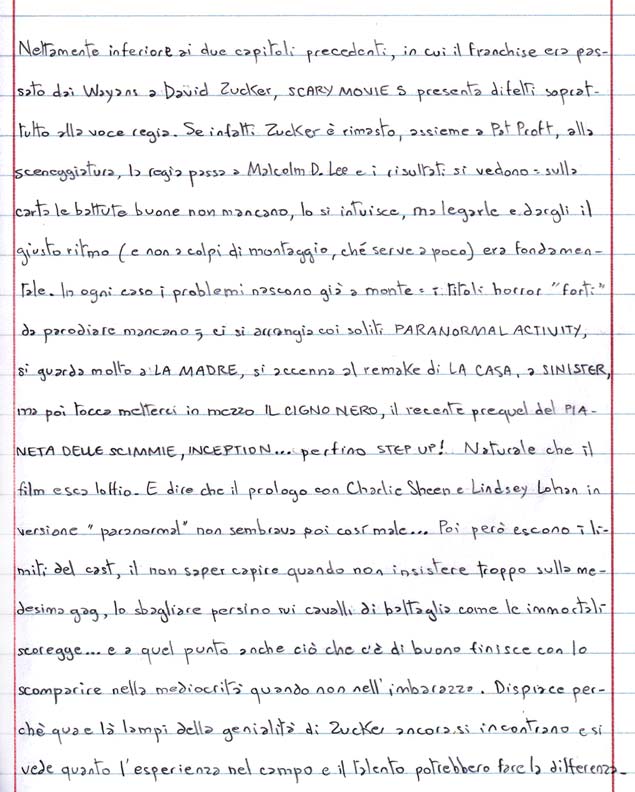 Nettamente inferiore ai due capitoli precedenti, in cui il franchise era pas-
sato dai Wayans a David Zucker, SCARY MOVIE 5 presenta difetti soprat-
tutto alla voce regia. Se infatti Zucker è rimasto, assieme a Pat Proft, alla
sceneggiatura, la regia passa a Malcolm D. Lee e i risultati si vedono: sulla
carta le battute buone non mancano, lo si intuisce, ma legarle e dargli il
giusto ritmo (e non a colpi di montaggio, ché serve a poco) era fondamen-
tale. In ogni caso i problemi nascono già a monte: i titoli horror "forti"
da parodiare mancano; ci si arrangia coi soliti PARANORMAL ACTIVITY,
si guarda molto a LA MADRE, si accenna al remake di LA CASA, a SINISTER,
ma poi tocca metterci in mezzo IL CIGNO NERO, il recente prequel del PIA-
NETA DELLE SCIMMIE, INCEPTION... perfino STEP UP! Naturale che il
film esca loffio. E dire che il prologo con Charlie Sheen e Lindsey Lohan in
versione "paranormal" non sembrava poi così male... Poi però escono i li-
miti del cast, il non saper capire quando non insistere troppo sulla me-
desima gag, lo sbagliare persino sui cavalli di battaglia come le immortali
scoregge... e a quel punto anche ciò che c'è di buono finisce con lo
scomparire nella mediocrità quando non nell'imbarazzo. Dispiace per-
chè qua e là lampi della genialità di Zucker ancora si incontrano e si
vede quanto l'esperienza nel campo e il talento potrebbero fare la differenza.